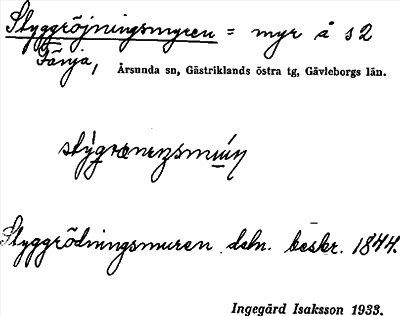 Styggröjningsmyren = myr å s 2
Fänja,
Årsunda sn, Gästriklands östra tg, Gävleborgs län.
Styggrödningsmuren deln. beskr. 1844.
Ingegärd Isaksson 1933.